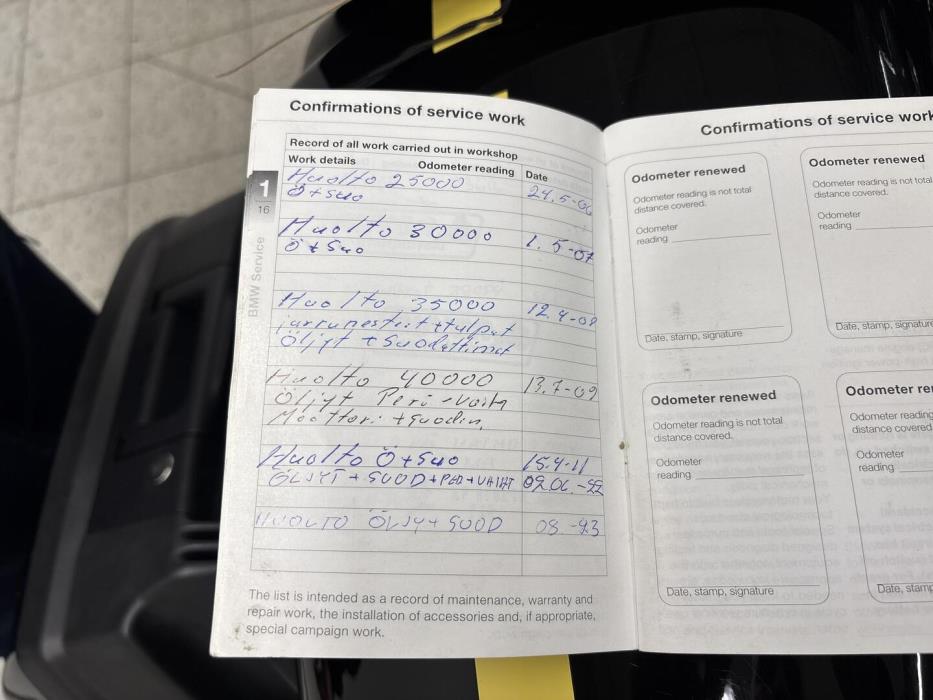 Confirmations of service work
Record of all work carried out in workshop
Work details Odometer reading Date
Huolto 25000 24.5-06
Ö+suo
Huolto 30000 1.5-07
Ö+suo
Huolto 35000 12.4-08
jarrunesteet+tulpat
Öljyt + suodattimet
Huolto 40000 13.7-09
Öljyt Perä-vaiht
Moottori +suodin
Huolto Ö+suo 15.4-11
ÖLJYT + SUOD+PER+VAIHT 09.06.-22
HUOLTO ÖLJY+SUOD 08.-23
The list is intended as a record of maintenance, warranty and
repair work, the installation of accessories and, if appropriate,
special campaign work.
1
16
BMW Service
Confirmations of service work
Odometer renewed
Odometer reading is not total
distance covered.
Odometer
reading
Date, stamp, signature
Odometer renewed
Odometer reading is not total
distance covered.
Odometer
reading
Date, stamp, signature
Odometer renewed
Odometer reading is not total
distance covered.
Odometer
reading
Date, stamp, signature
Odometer re
Odometer reading
distance covered
Odometer
reading
Date, stamp